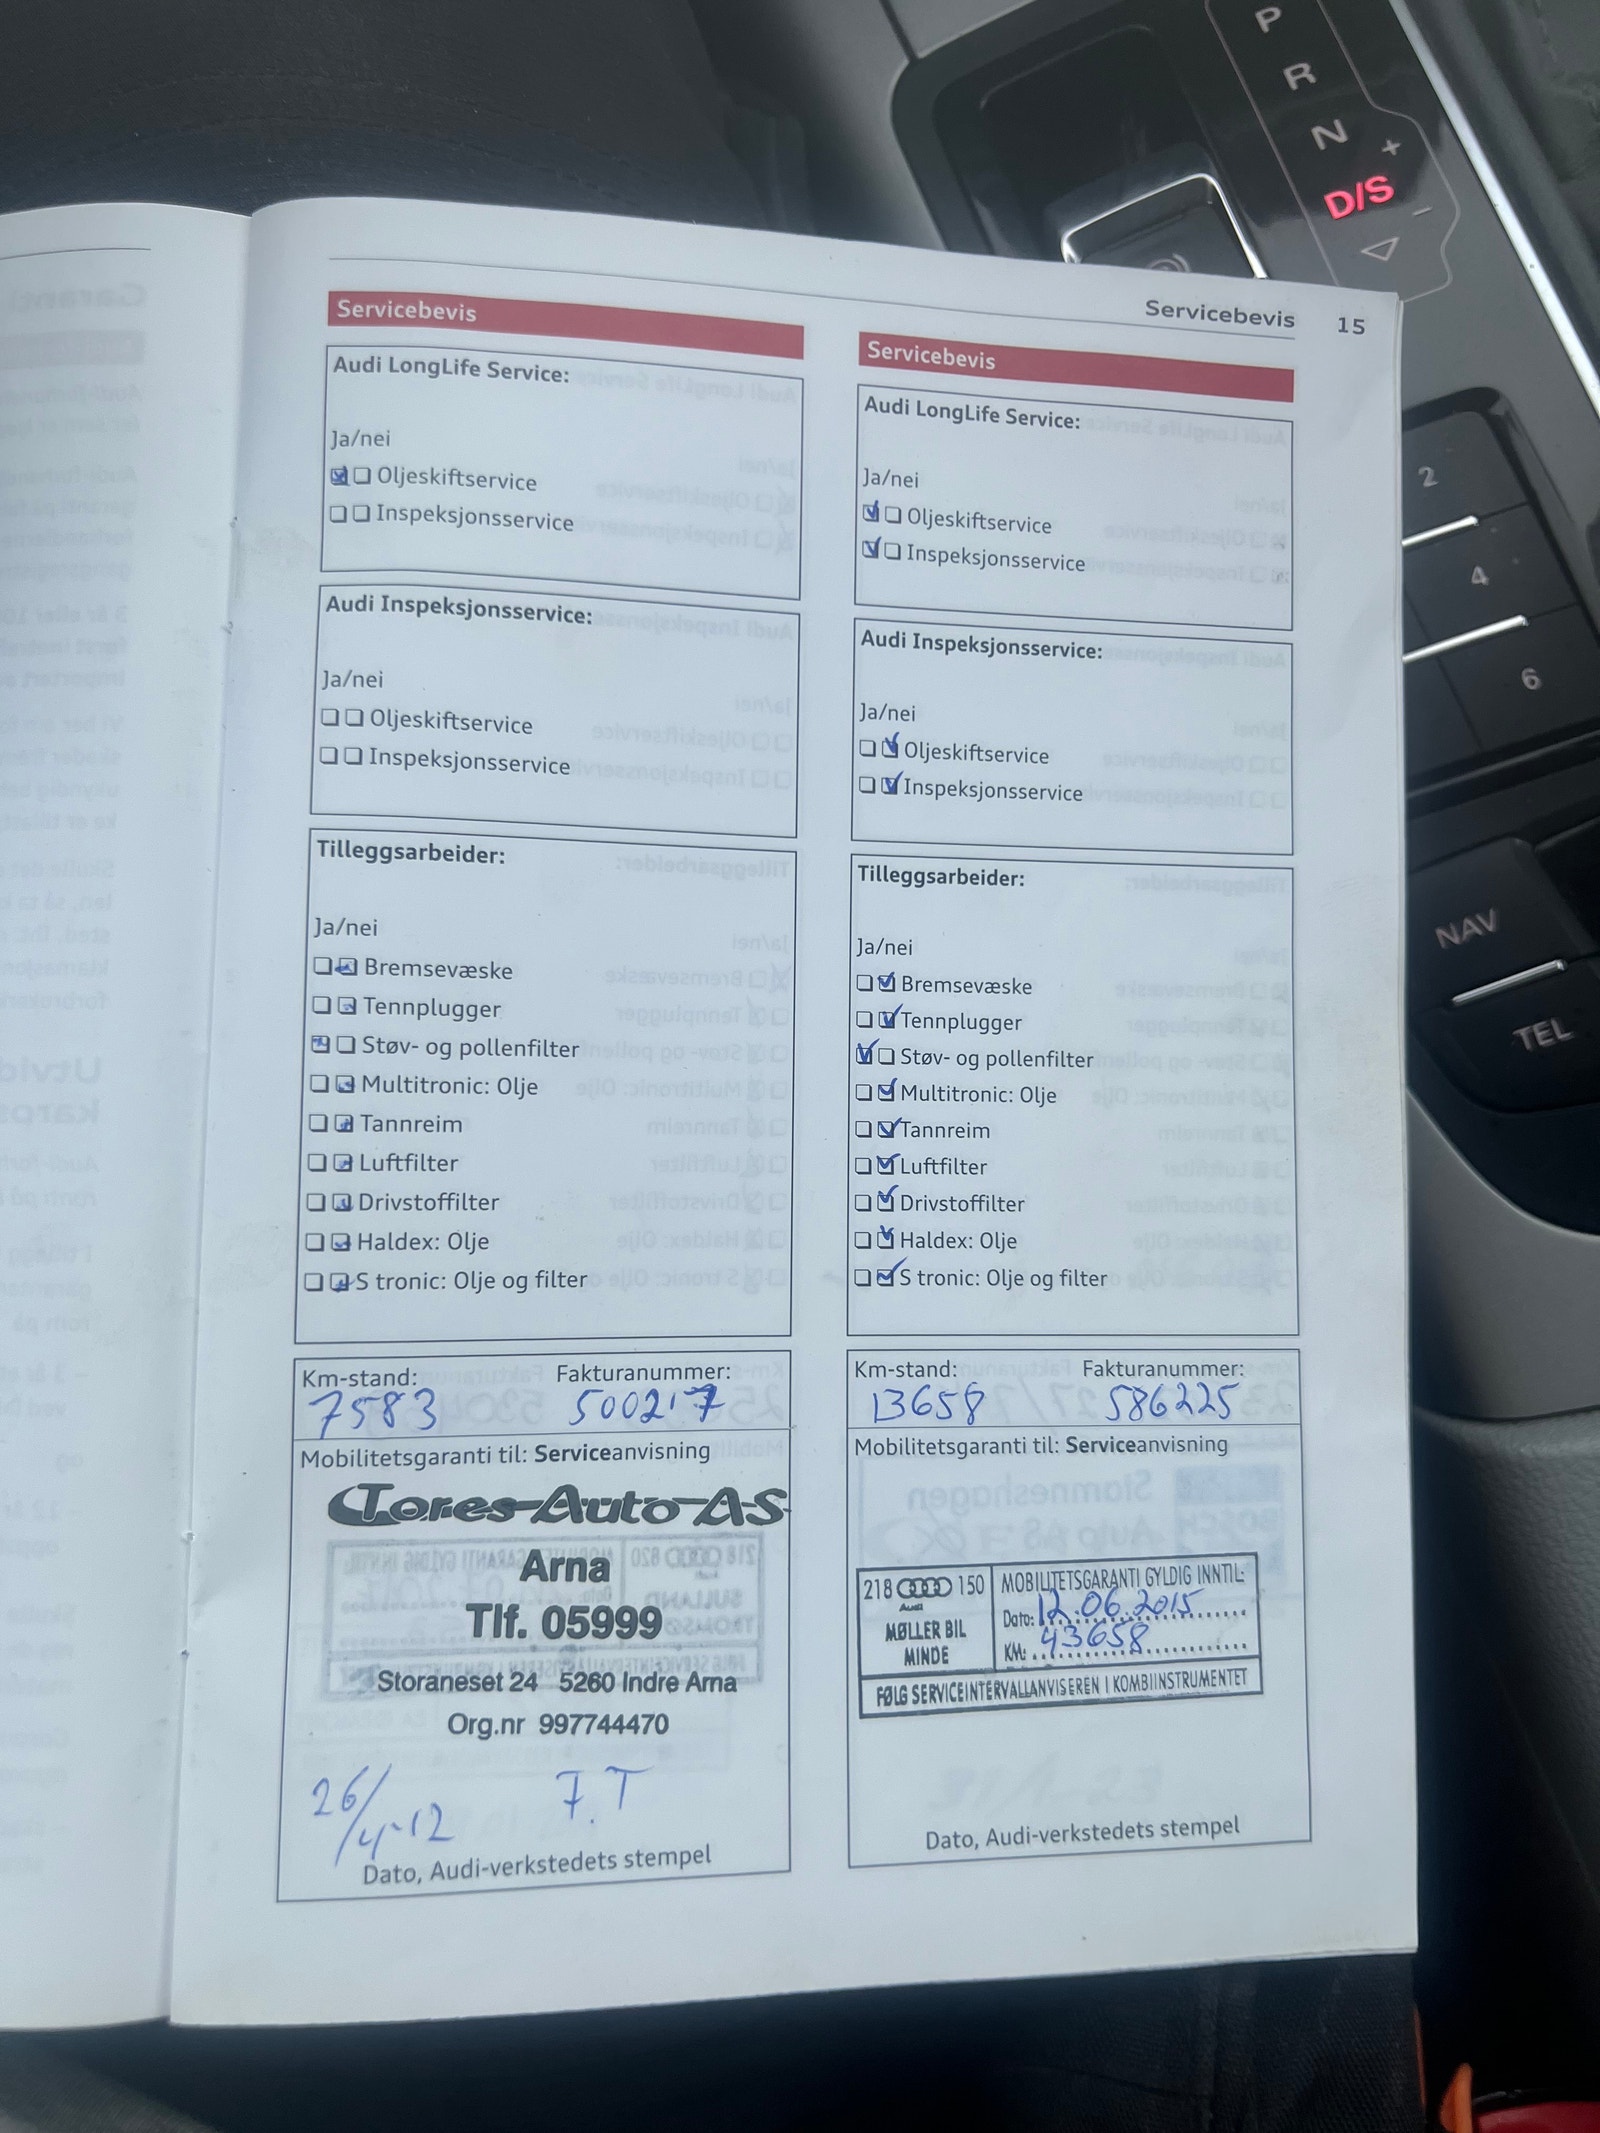 Servicebevis 15
Servicebevis
Audi LongLife Service:
Ja/nei
Oljeskiftservice
Inspeksjonsservice
Audi Inspeksjonsservice:
Ja/nei
Oljeskiftservice
Inspeksjonsservice
Tilleggsarbeider:
Ja/nei
Bremsevæske
Tennplugger
Støv- og pollenfilter
Multitronic: Olje
Tannreim
Luftfilter
Drivstoffilter
Haldex: Olje
S tronic: Olje og filter
Km-stand: Fakturanummer:
7583 500217
Mobilitetsgaranti til: Serviceanvisning
Tores Auto AS
Arna
Tlf. 05999
Storaneset 24 5260 Indre Arna
Org.nr 997744470
26/4-12 F.T
Dato, Audi-verkstedets stempel
Servicebevis
Audi LongLife Service:
Ja/nei
Oljeskiftservice
Inspeksjonsservice
Audi Inspeksjonsservice:
Ja/nei
Oljeskiftservice
Inspeksjonsservice
Tilleggsarbeider:
Ja/nei
Bremsevæske
Tennplugger
Støv- og pollenfilter
Multitronic: Olje
Tannreim
Luftfilter
Drivstoffilter
Haldex: Olje
S tronic: Olje og filter
Km-stand: Fakturanummer:
13658 586225
Mobilitetsgaranti til: Serviceanvisning
218 150
Audi
MØLLER BIL
MINDE
MOBILITETSGARANTI GYLDIG INNTIL:
Dato: 12.06.2015
KM: 43658
FØLG SERVICEINTERVALLANVISEREN I KOMBIINSTRUMENTET
Dato, Audi-verkstedets stempel
P
R
N
+
D/S
-
2
4
6
NAV
TEL